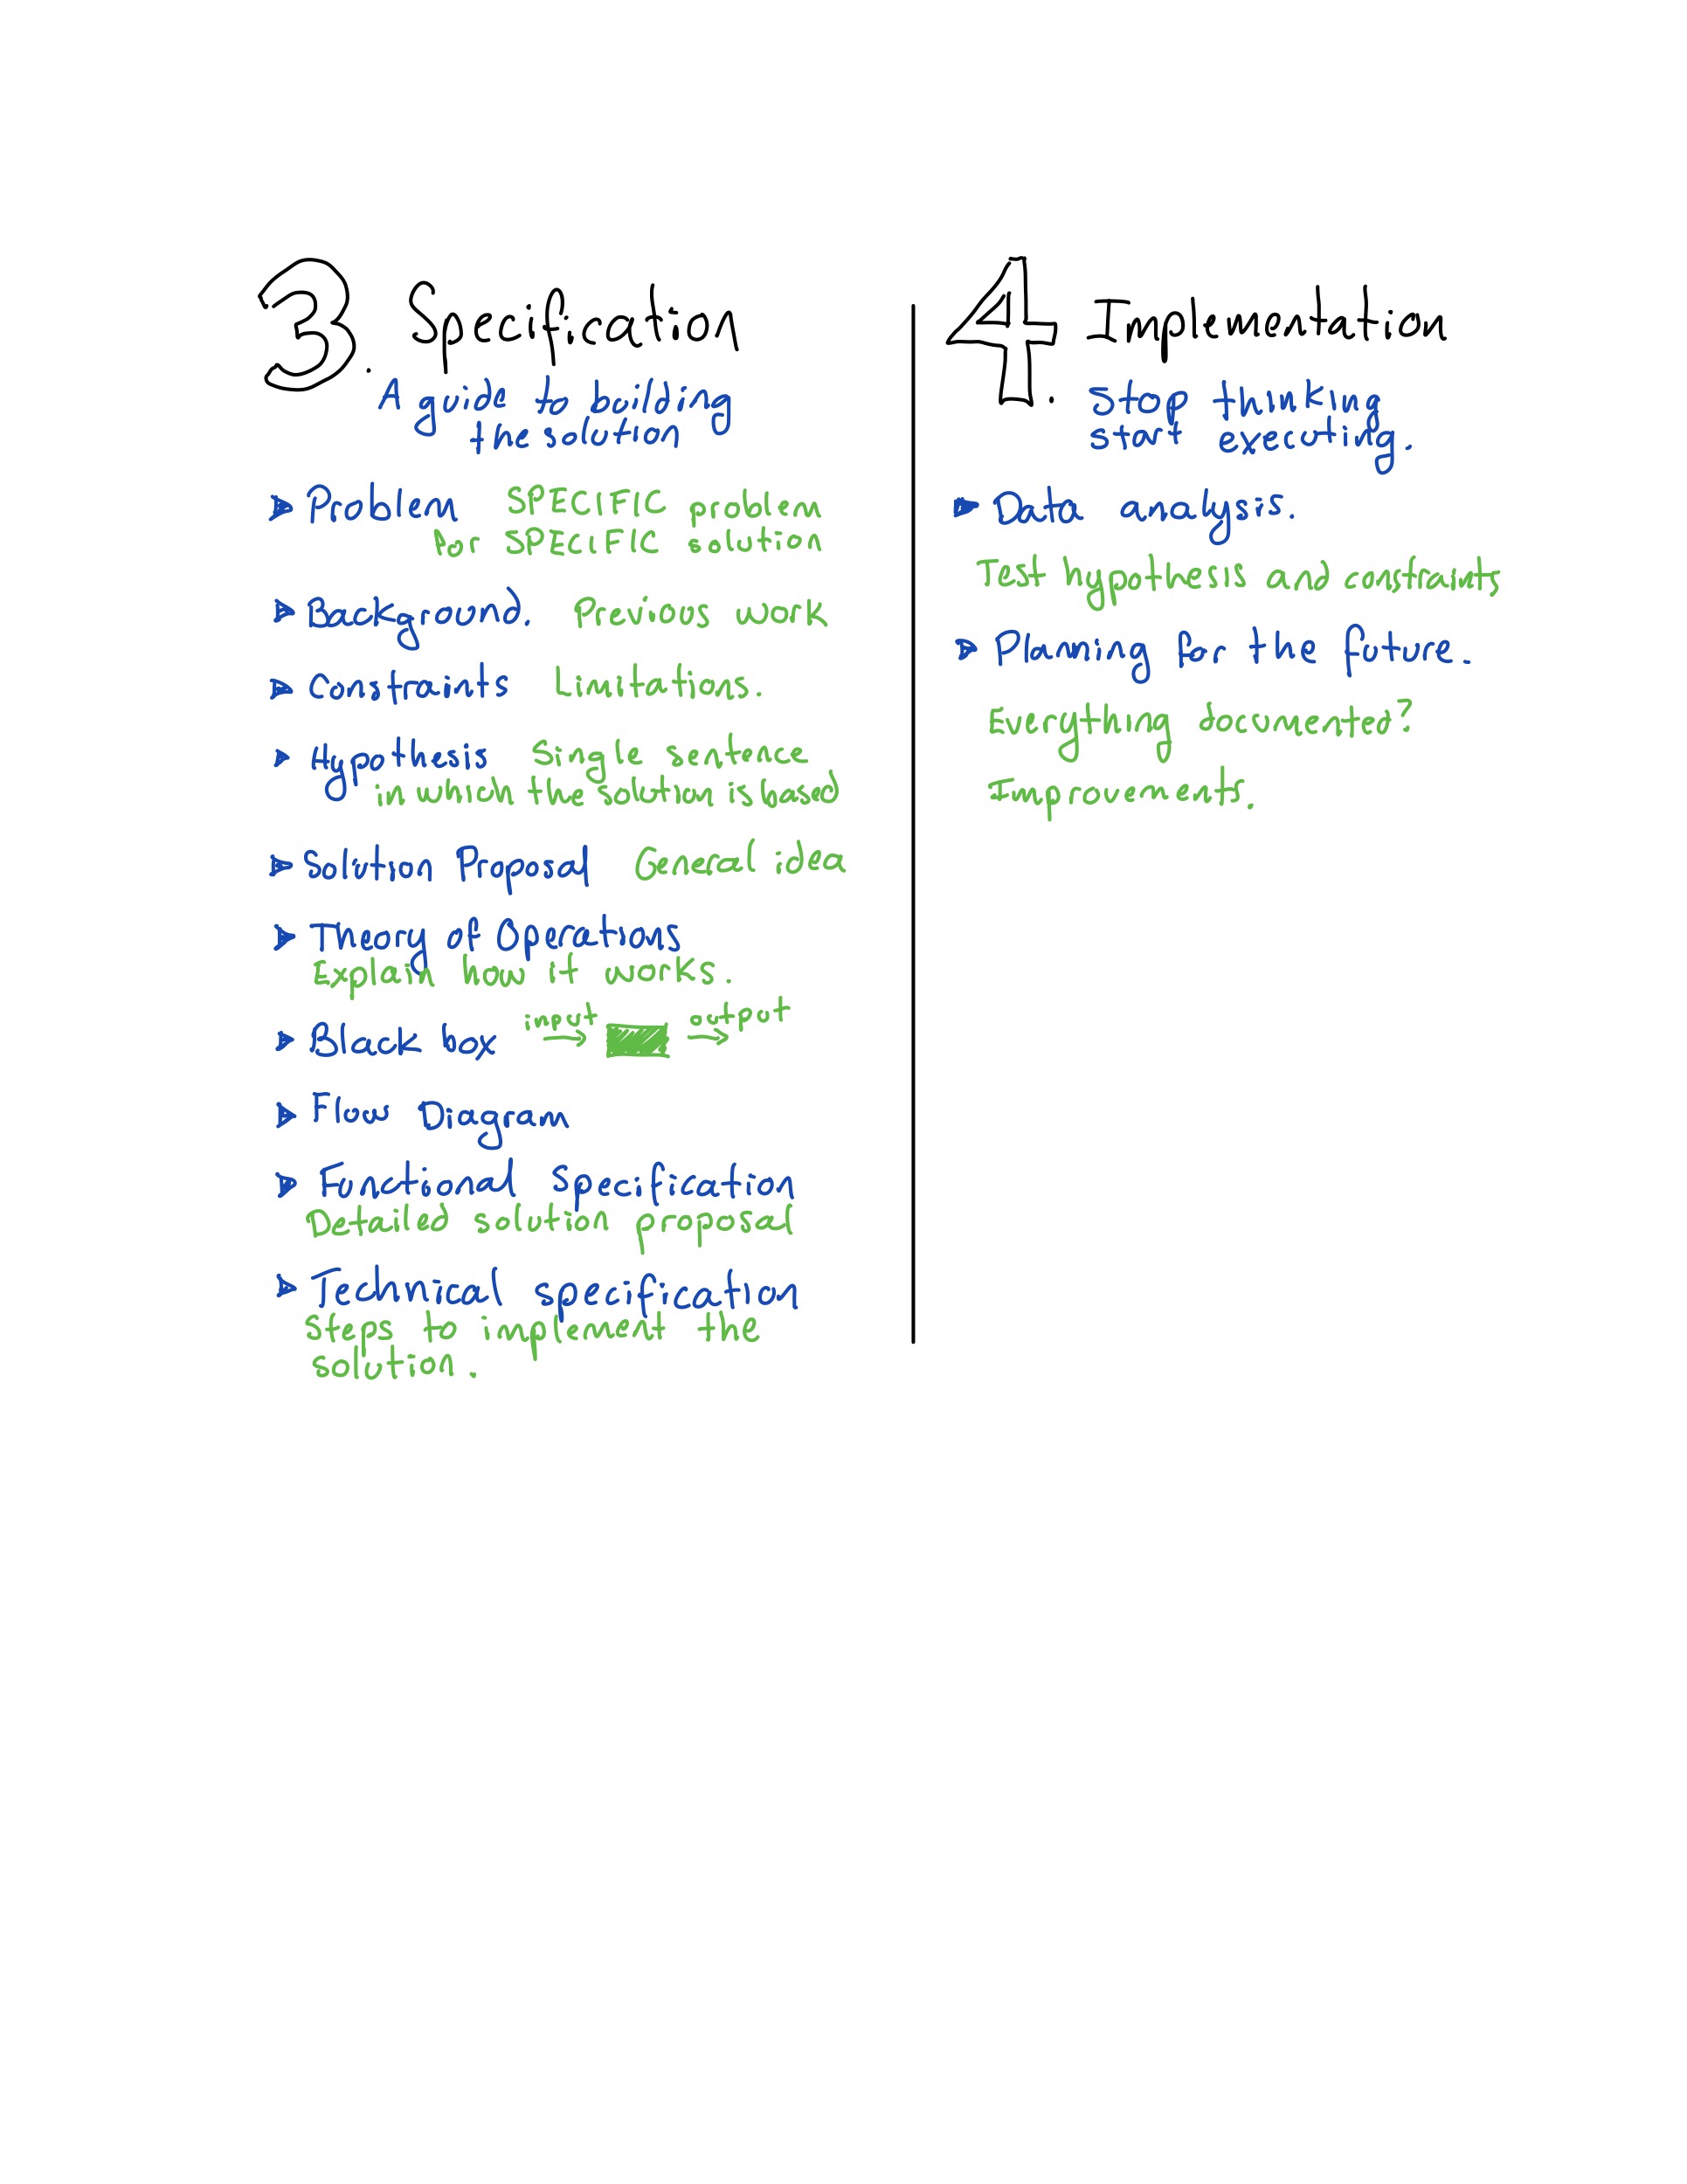 3. Specification
A guide to building
the solution
Problem SPECIFIC problem
for SPECIFIC solution
Background. Previous work
Constraints Limitations.
Hypothesis Single sentence
in which the solution is based
Solution Proposal General idea
Theory of Operations
Explain how it works.
Black box input → output →
Flow Diagram
Functional Specification
Detailed solution proposal
Technical specification
Steps to implement the
solution.
4. Implementation
Stop thinking
start executing.
Data analysis.
Test hypothesis and constraints
Planning for the future.
Everything documented?
Improvements.